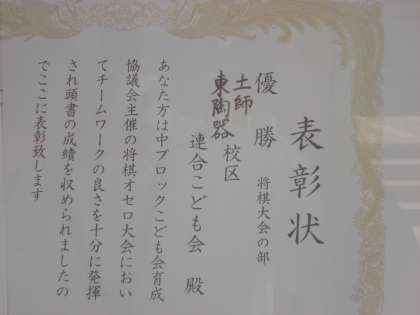 表彰状
将棋大会の部
優勝
土師
東陶器校区
連合こども会 殿
あなた方は中ブロックこども会育成
協議会主催の将棋オセロ大会におい
てチームワークの良さを十分に発揮
され頭書の成績を収められましたの
でここに表彰致します